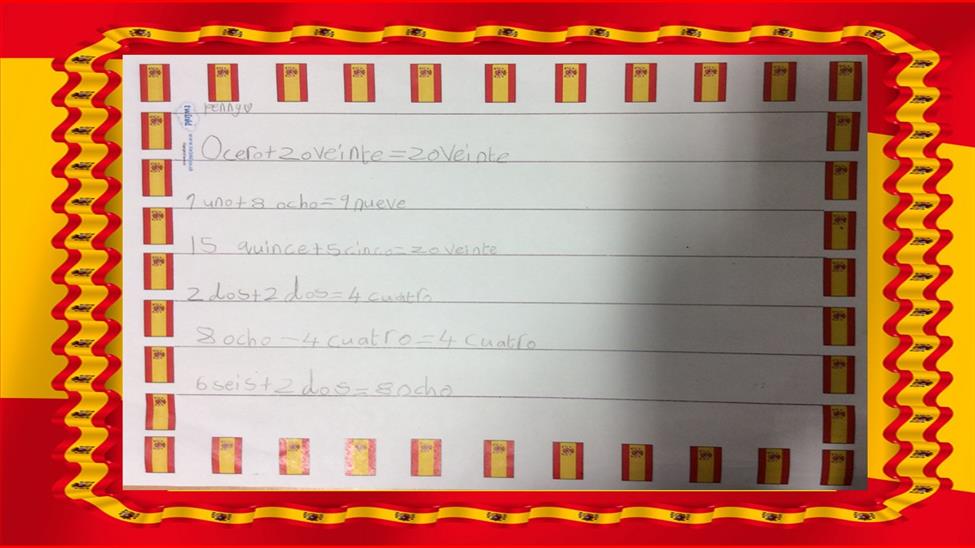 Penny
twinkl
0 cero+20 veinte=20 veinte
1 uno+8 ocho=9 nueve
15 quince+5 cinco=20 veinte
2 dos+2 dos=4 cuatro
8 ocho-4 cuatro=4 cuatro
6 seis+2 dos=8 ocho